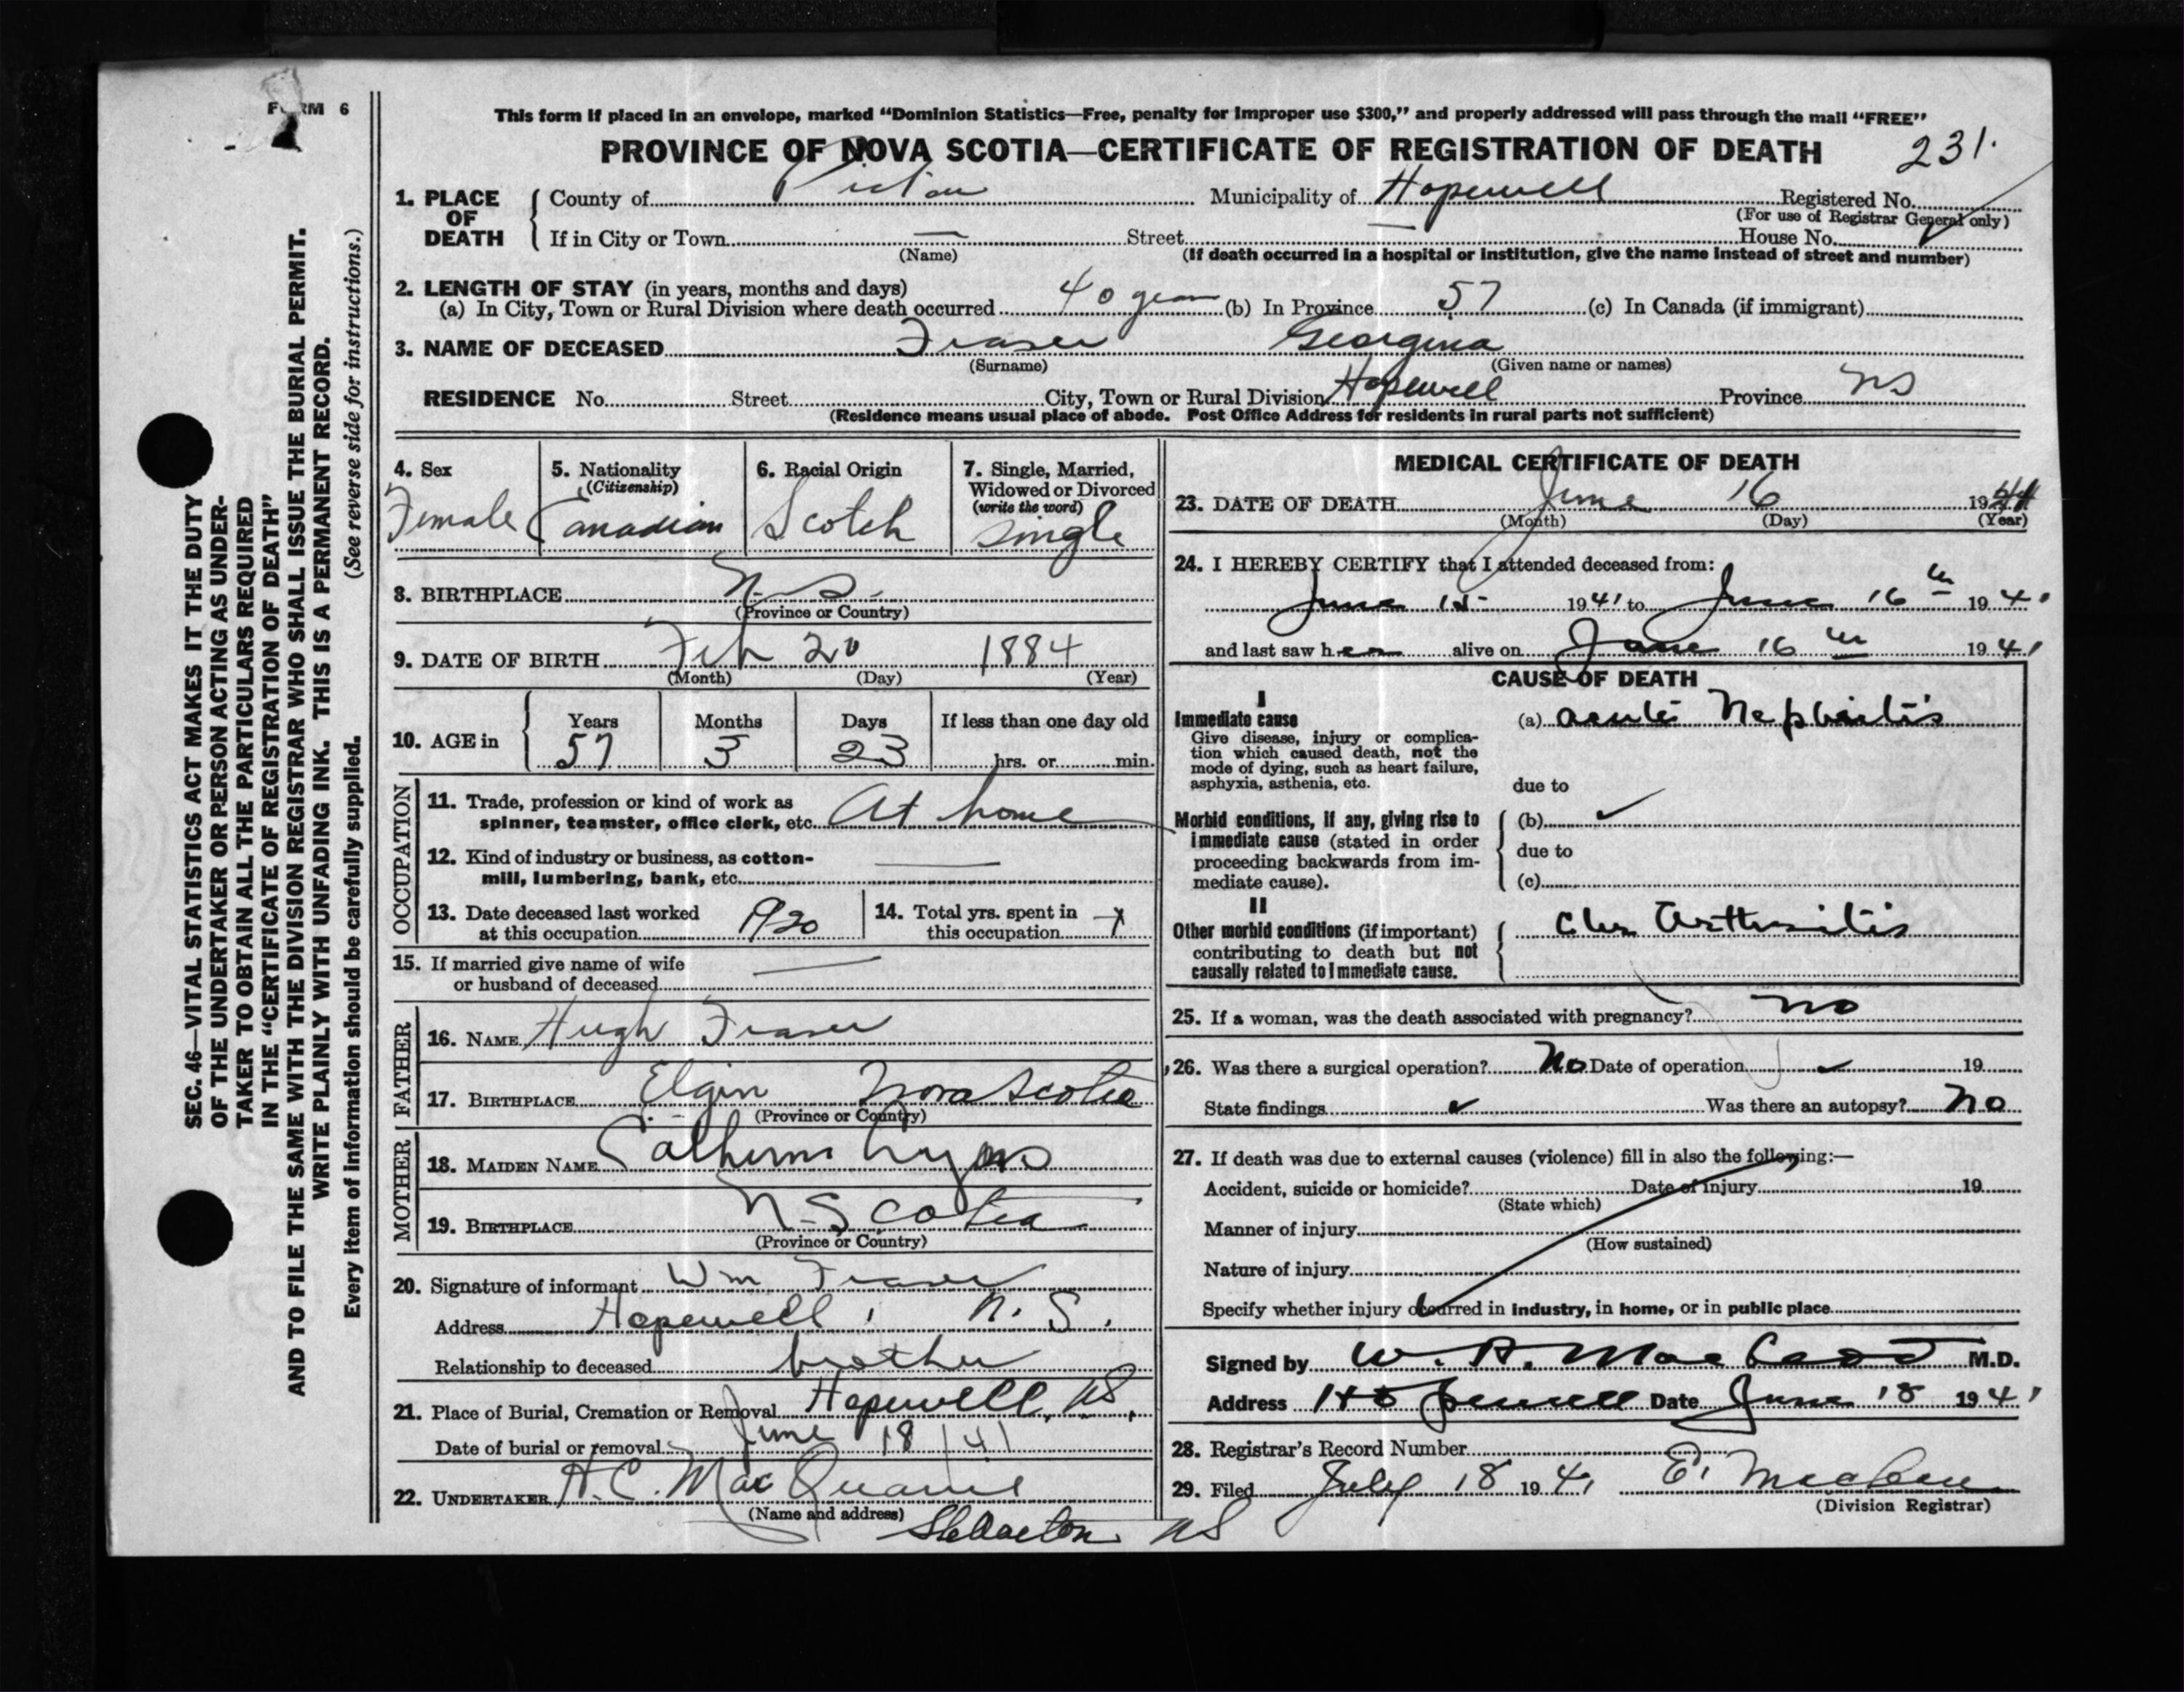 FORM 6
This form if placed in an envelope, marked “Dominion Statistics—Free, penalty for improper use $300,” and properly addressed will pass through the mail “FREE”
PROVINCE OF NOVA SCOTIA—CERTIFICATE OF REGISTRATION OF DEATH 231.
1. PLACE OF DEATH
County of Pictou Municipality of Hopewell Registered No.
(For use of Registrar General only)
If in City or Town — Street House No.
(Name) (If death occurred in a hospital or institution, give the name instead of street and number)
2. LENGTH OF STAY (in years, months and days)
(a) In City, Town or Rural Division where death occurred 40 years (b) In Province 57 (c) In Canada (if immigrant)
3. NAME OF DECEASED Fraser Georgina
(Surname) (Given name or names)
RESIDENCE No. Street City, Town or Rural Division Hopewell Province NS
(Residence means usual place of abode. Post Office Address for residents in rural parts not sufficient)
4. Sex
Female
5. Nationality
(Citizenship)
Canadian
6. Racial Origin
Scotch
7. Single, Married,
Widowed or Divorced
(write the word)
Single
8. BIRTHPLACE N.S.
(Province or Country)
9. DATE OF BIRTH Feb 20 1884
(Month) (Day) (Year)
10. AGE in
Years Months Days If less than one day old
57 3 23 hrs. or min.
OCCUPATION
11. Trade, profession or kind of work as
spinner, teamster, office clerk, etc. At home
12. Kind of industry or business, as cotton-
mill, lumbering, bank, etc. —
13. Date deceased last worked
at this occupation 1920
14. Total yrs. spent in
this occupation
15. If married give name of wife
or husband of deceased —
FATHER
16. NAME Hugh Fraser
17. BIRTHPLACE Elgin Nova Scotia
(Province or Country)
MOTHER
18. MAIDEN NAME
19. BIRTHPLACE N. Scotia
(Province or Country)
20. Signature of informant Wm Fraser
Address Hopewell, N. S.
Relationship to deceased brother
21. Place of Burial, Cremation or Removal Hopewell, NS,
Date of burial or removal June 18/41
22. UNDERTAKER H. C. MacQuarrie
(Name and address) NS
MEDICAL CERTIFICATE OF DEATH
23. DATE OF DEATH June 16 1941
(Month) (Day) (Year)
24. I HEREBY CERTIFY that I attended deceased from:
June 15 1941 to June 16th 1941
and last saw her alive on June 16th 1941
CAUSE OF DEATH
I
Immediate cause
Give disease, injury or complica-
tion which caused death, not the
mode of dying, such as heart failure,
asphyxia, asthenia, etc.
(a) acute Nephritis
due to
Morbid conditions, if any, giving rise to
immediate cause (stated in order
proceeding backwards from im-
mediate cause).
(b)
due to
(c)
II
Other morbid conditions (if important)
contributing to death but not
causally related to immediate cause.
Chr Arthritis
25. If a woman, was the death associated with pregnancy? no
26. Was there a surgical operation? No Date of operation 19
State findings Was there an autopsy? No
27. If death was due to external causes (violence) fill in also the following:—
Accident, suicide or homicide? Date of injury 19
(State which)
Manner of injury
(How sustained)
Nature of injury
Specify whether injury occurred in industry, in home, or in public place
Signed by W. A. MacLeod M.D.
Address Hopewell Date June 18 1941
28. Registrar's Record Number
29. Filed July 18 1941 E.
(Division Registrar)
SEC. 46—VITAL STATISTICS ACT MAKES IT THE DUTY
OF THE UNDERTAKER OR PERSON ACTING AS UNDER-
TAKER TO OBTAIN ALL THE PARTICULARS REQUIRED
IN THE “CERTIFICATE OF REGISTRATION OF DEATH”
AND TO FILE THE SAME WITH THE DIVISION REGISTRAR WHO SHALL ISSUE THE BURIAL PERMIT.
WRITE PLAINLY WITH UNFADING INK. THIS IS A PERMANENT RECORD.
Every item of information should be carefully supplied. (See reverse side for instructions.)